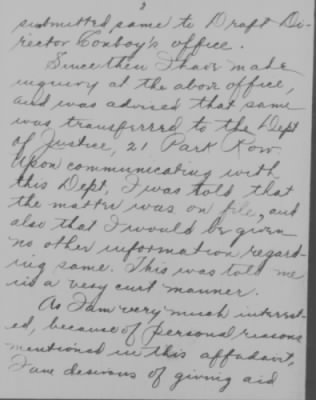 2
submitted same to Draft Di-
rector Conboy's office.
Since then I have made
inquiry at the above office,
and was advised that same
was transferred to the Dept
of Justice, 21 Park Row.
Upon communicating with
this Dept, I was told that
the matter was on file, and
also that I would be given
no other information regard-
ing same. This was told me
in a very curt manner.
As I am very much interest-
ed, because of personal reasons
mentioned in this affadavit,
I am desirous of giving aid